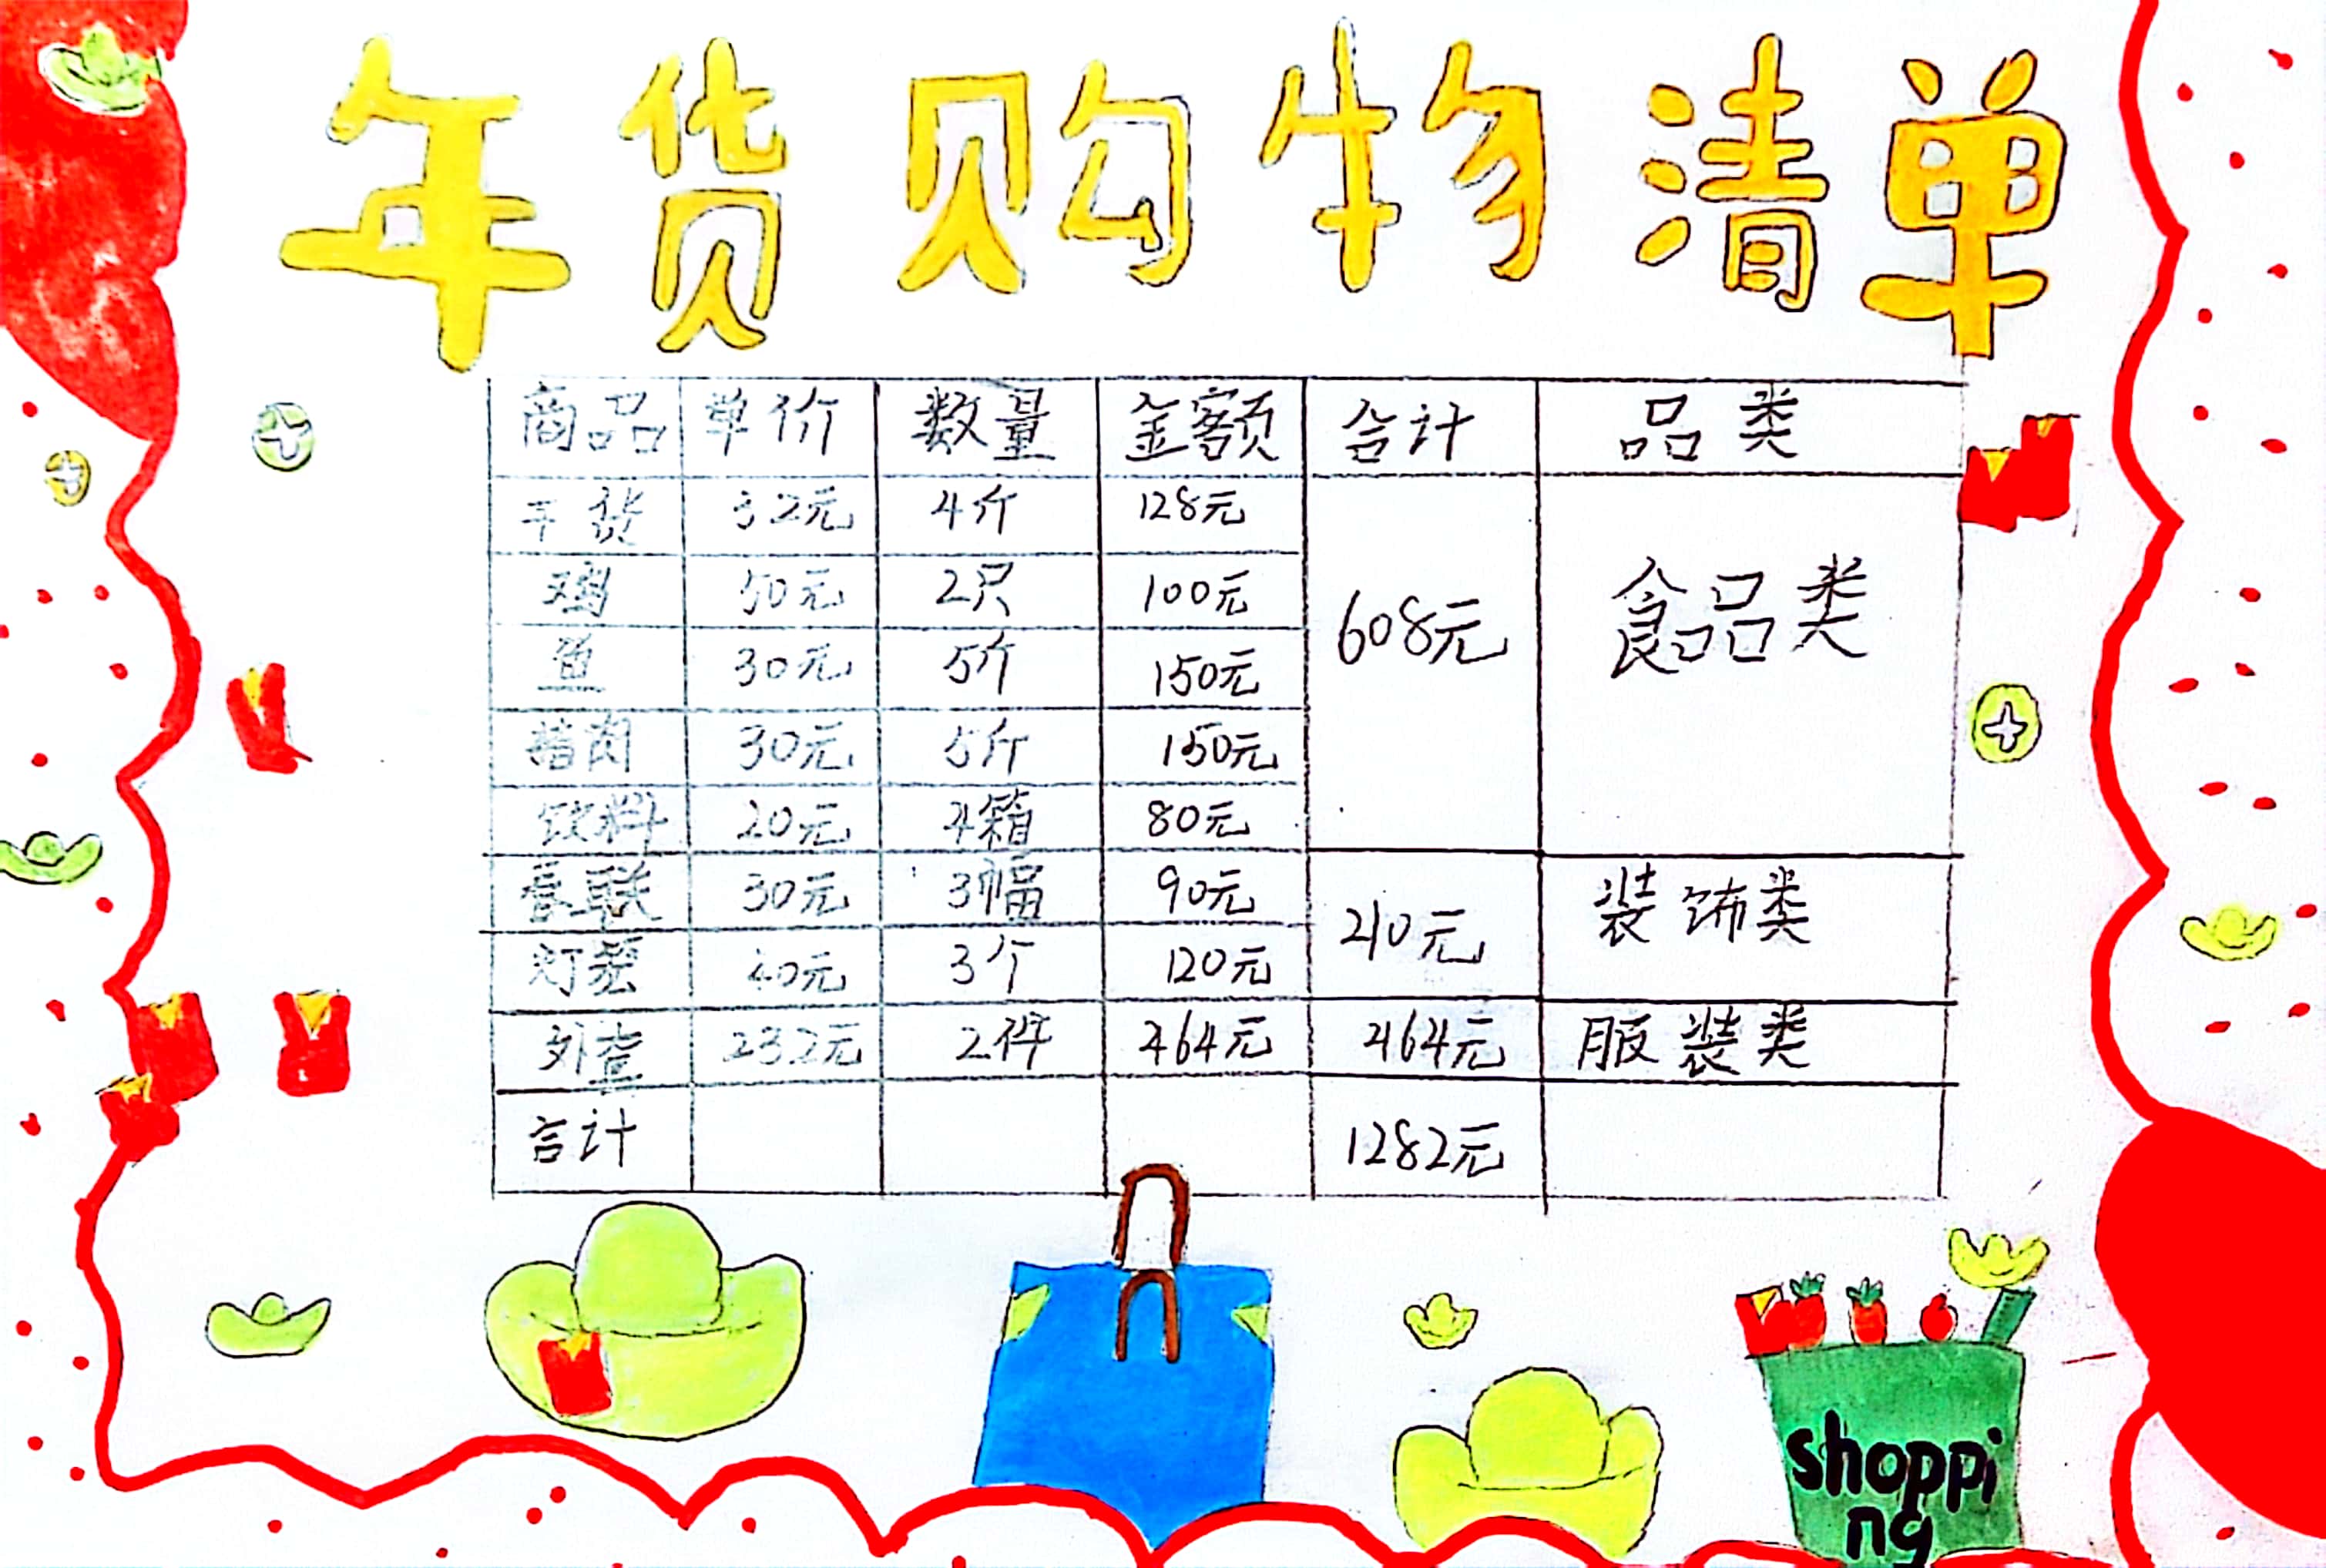 年货购物清单
商品 单价 数量 金额 合计 品类
干货 32元 4斤 128元
鸡 50元 2只 100元
鱼 30元 5斤 150元
608元 食品类
猪肉 30元 5斤 150元
饮料 20元 4箱 80元
春联 30元 3幅 90元
210元 装饰类
灯笼 40元 3个 120元
外套 232元 2件 464元 464元 服装类
合计 1282元
shoppi
ng